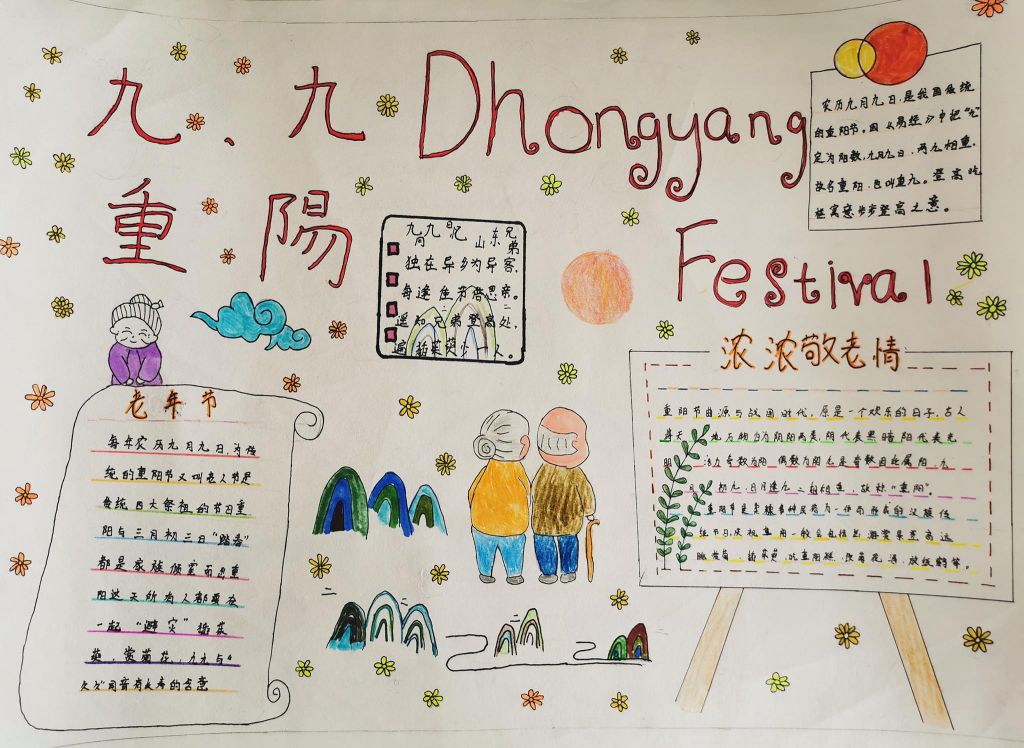 九、九
重陽
Dhongyang
Festival
农历九月九日,是我国传统
的重阳节。因《易经》中把“九”
定为阳数,九月九日,两九相重,
故名重阳,也叫重九。登高吃
糕寓意步步登高之意。
九月九日忆山东兄弟
独在异乡为异客,
每逢佳节倍思亲。
遥知兄弟登高处,
遍插茱萸少一人。
老年节
每年农历九月九日,为传
统的重阳节又叫老人节是
传统四大祭祖的节日重
阳与三月初三日“踏春”
都是家族倾室而出重
阳这天所有人都要在
一起“避灾”插茱
萸,赏菊花,九九与
久久同音有长寿的含意
浓浓敬老情
重阳节由源与战国时代,原是一个欢乐的日子,古人
将天 地万物分为阴阳两类,阴代表黑暗阳代表光
明 奇数为阳 偶数为阴 九是奇数因此属阳,九
月初九,日月逢九 二阳相重,故称“重阳”。
重阳节是 为一体而形成的
庆祝重阳一般会包括出游赏景登高远
眺 菊 插茱萸,吃重阳糕,饮菊花酒,放纸鹤等。